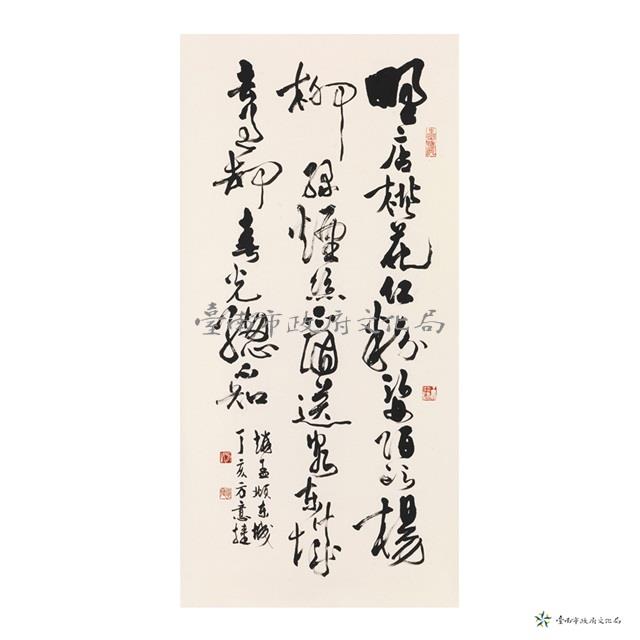 野店桃花紅粉姿陌頭楊
柳綠煙絲不因送客東城
去過卻春光總不知
趙孟頫東城
丁亥方意
臺南市政府文化局
臺南市政府文化局